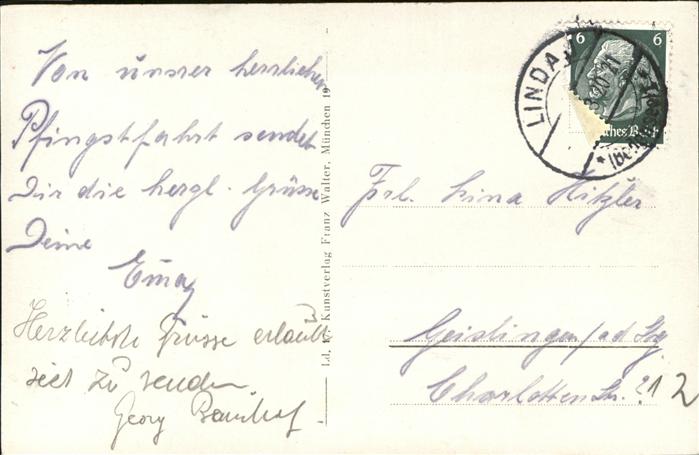 Von unsrer herrlichen
Pfingstfahrt sendet
Dir die herzl. Grüsse
Deine
Emmy
Herzlichste Grüsse erlaubt
sich zu senden
Georg
Ld. Kunstverlag Franz Walter, München 19
LINDAU
(Bodensee)
6 6
Deutsches Reich
Frl. Lina Hitzler
Geislingen/ad Stg
Charlottenstr. 21
2